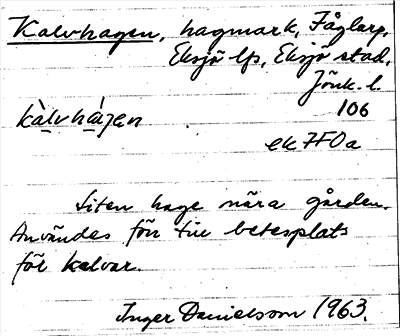 Kalvhagen, hagmark, Fåglarp,
Eksjö lfs, Eksjö stad,
Jönk. l.
106
kàlvhá̱gen
ek 7F0a
Liten hage nära gården.
Användes förr till betesplats
för kalvar.
Inger Danielsson 1963.